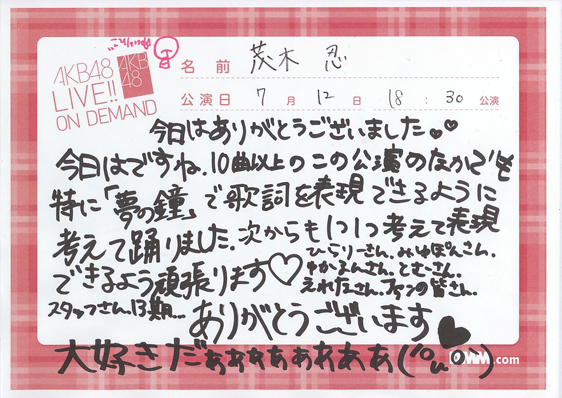 AKB48
LIVE!!
ON DEMAND
AKB
48
名前 茂木 忍
公演日 7月12日 18:30公演
今日はありがとうございました♥♥
今日はですね、10曲以上のこの公演のなかでも
特に「夢の鐘」で歌詞を表現できるように
考えて踊りました。次からも1つ1つ考えて表現
できるよう頑張ります♡
ひらりーさん、みゆぽんさん、
ともさん、
えれなさん、ファンの皆さん、
スタッフさん、13期…
ありがとうございます♥
大好きだぁぁぁぁぁぁぁぁ
.com